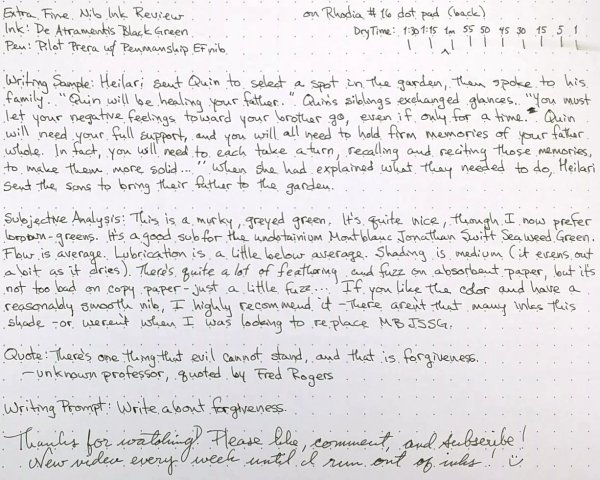 Extra Fine Nib Ink Review
on Rhodia #16 dot pad (back)
Ink: De Atramentis Black Green
Dry Time: 1:30 1:15 1m 55 50 45 30 15 5 1
Pen: Pilot Prera w/ Penmanship EF nib
Writing Sample: Heilari sent Quin to select a spot in the garden, then spoke to his
family. "Quin will be healing your father." Quin's siblings exchanged glances. "You must
let your negative feelings toward your brother go, even if only for a time. Quin
will need your full support, and you will all need to hold firm memories of your father
whole. In fact, you will need to each take a turn, recalling and reciting those memories,
to make them more solid..." When she had explained what they needed to do, Heilari
sent the sons to bring their father to the garden.
Subjective Analysis: This is a murky, greyed green. It's quite nice, though I now prefer
brown-greens. It's a good sub for the unobtainium Montblanc Jonathan Swift Seaweed Green.
Flow is average. Lubrication is a little below average. Shading is medium (it evens out
a bit as it dries). There's quite a lot of feathering and fuzz on absorbent paper, but it's
not too bad on copy paper - just a little fuzz... If you like the color and have a
reasonably smooth nib, I highly recommend it - there aren't that many inks this
shade - or weren't when I was looking to replace MB JSSG.
Quote: There's one thing that evil cannot stand, and that is forgiveness.
- unknown professor, quoted by Fred Rogers
Writing Prompt: Write about forgiveness.
Thanks for watching! Please like, comment, and subscribe!
New video every week until I run out of inks!